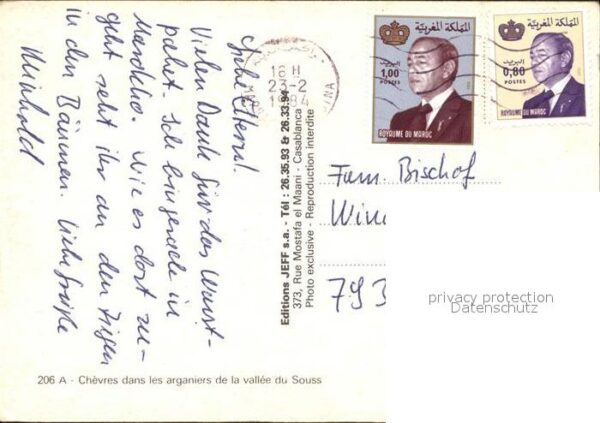 Liebe Eltern!
Vielen Dank für das Wurst-
paket. Ich bin gerade in
Marokko. Wie es dort zu-
geht seht ihr an den Ziegen
in den Bäumen. Liebe Grüße
Meinhold
Editions JEFF s.a. - Tél : 26.35.93 & 26.33.94
373, Rue Mostafa el Maani - Casablanca
Photo exclusive - Reproduction interdite
18 H
23-2
1984
المملكة المغربية
البريد
1,00
POSTES
ROYAUME DU MAROC
المملكة المغربية
البريد
0,80
POSTES
ROYAUME DU MAROC
Fam. Bischof
793
privacy protection
Datenschutz
206 A - Chèvres dans les arganiers de la vallée du Souss